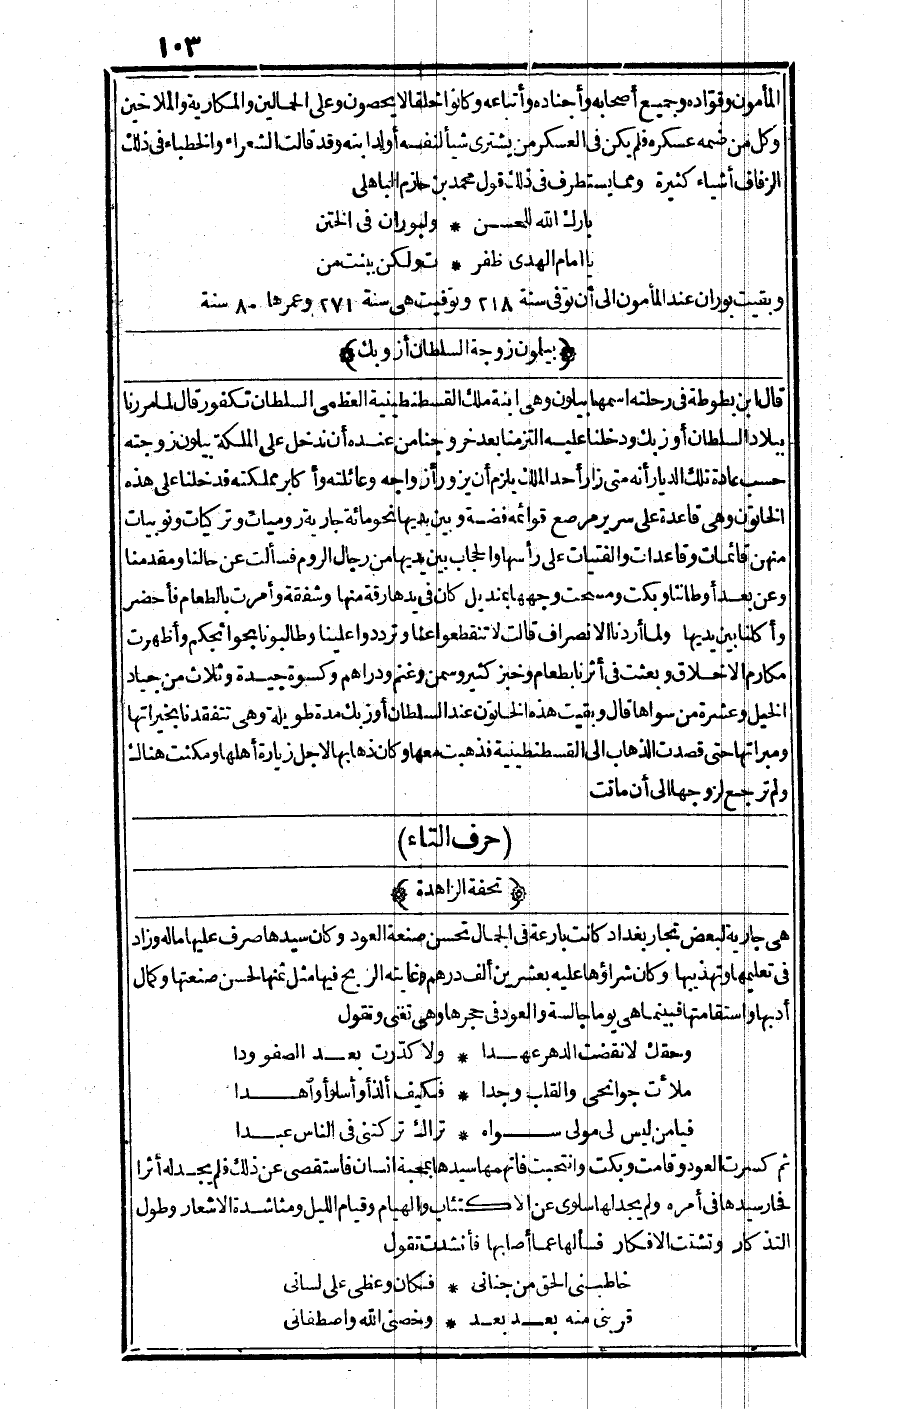 ١٠٣
المأمون وقوّاده وجميع أصحابه وأجناده وأتباعه وكانوا خلقا لا يحصون وعلى الجمالين والمكارية والملاحين
وكل من ضمه عسكره فلم يكن فى العسكر من يشترى شيأ لنفسه أو لدابته وقد قالت الشعراء والخطباء فى ذلك
الزفاف أشياء كثيرة ومما يستطرف فى ذلك قول محمد بن حازم الباهلى
بارك الله للحسن * ولبوران فى الختن
يا امام الهدى ظفر * ت ولكن ببنت من
وبقيت بوران عند المأمون الى أن توفى سنة ٢١٨ وتوفيت هى سنة ٢٧١ وعمرها ٨٠ سنة
﴿بيلون زوجة السلطان أزوبك﴾
قال ابن بطوطة فى رحلته اسمها بيلون وهى ابنة ملك القسطنطينية العظمى السلطان تكفور قال لما مررنا
ببلاد السلطان أوزبك ودخلنا عليه التزمنا بعد خروجنا من عنده أن ندخل على الملكة بيلون زوجته
حسب عادة تلك الديار أنه متى زار أحد الملك يلزم أن يزور أزواجه وعائلته وأكابر مملكته قد خلنا على هذه
الخاتون وهى قاعدة على سرير مرصع قوائمه فضة وبين يديها نحو مائة جارية روميات وتركيات ونوبيات
منهن قائمات وقاعدات والفتيات على رأسها والحجاب بين يديها من رجال الروم فسألت عن حالنا ومقدمنا
وعن بعد أوطاننا وبكت ومسحت وجهها بمنديل كان فى يدها رقة منها وشفقة وأمرت بالطعام فأحضر
وأكلنا بين يديها ولما أردنا الانصراف قالت لا تنقطعوا عنا وترددوا علينا وطالبونا بحوائجكم وأظهرت
مكارم الاخلاق وبعثت فى أثرنا بطعام وخبز كثير وسمن وغنم ودراهم وكسوة جيدة وثلاث من جياد
الخيل وعشرة من سواها قال وبقيت هذه الخاتون عند السلطان أوزبك مدة طويلة وهى تتفقدنا بخيراتها
ومبراتها حتى قصدت الذهاب الى القسطنطينية فذهبت معها وكان ذهابها لاجل زيارة أهلها ومكثت هناك
ولم ترجع لزوجها الى أن ماتت
(حرف التاء)
﴿تحفة الزاهدة﴾
هى جارية لبعض تجار بغداد كانت بارعة فى الجمال تحسن صنعة العود وكان سيدها صرف عليها ماله وزاد
فى تعليمها وتهذيبها وكان شراؤها عليه بعشرين ألف درهم وغايته الربح فيها مثل ثمنها لحسن صنعتها وكمال
أدبها واستقامتها فبينما هى يوما جالسة والعود فى حجرها وهى تغنى وتقول
وحقك لا نقضت الدهر عهدا * ولا كدّرت بعد الصفو ودا
ملأت جوانحى والقلب وجدا * فكيف ألذ أو أسلو أو أهدا
فيا من ليس لى مولى سواه * تراك تركتنى فى الناس عبدا
ثم كسرت العود وقامت وبكت وانتحبت فاتهمها سيدها بمحبة انسان فاستقصى عن ذلك فلم يجد له أثرا
فحار سيدها فى أمره ولم يجد لها سلوى عن الاكتئاب والهيام وقيام الليل ومناشدة الاشعار وطول
التذكار وتشتت الافكار فسألها عما أصابها فأنشدت تقول
خاطبنى الحق من جنانى * فكان وعظى على لسانى
قربنى منه بعد بعد * وخصنى الله واصطفانى